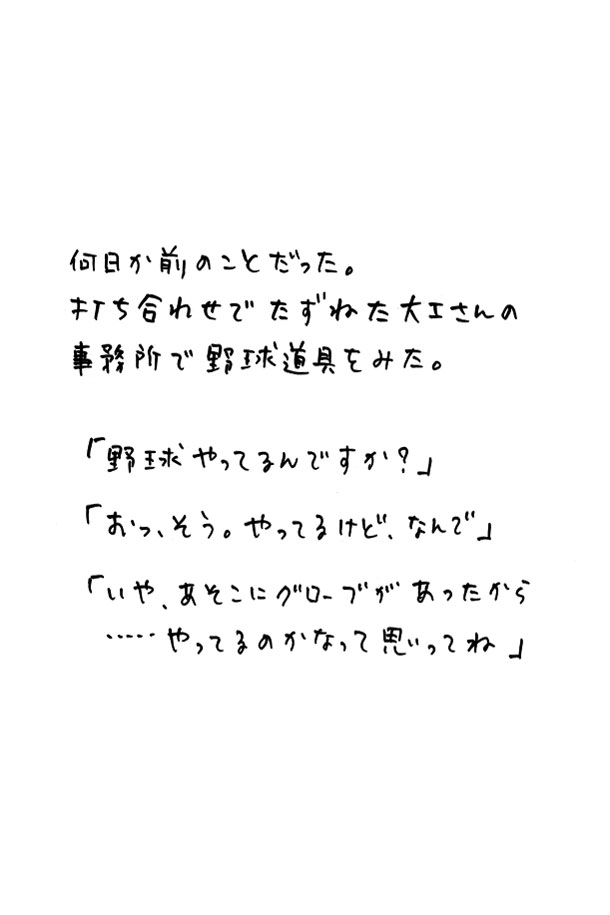 何日か前のことだった。
打ち合わせでたずねた大工さんの
事務所で野球道具をみた。
「野球やってるんですか?」
「おっ、そう。やってるけど、なんで」
「いや、あそこにグローブがあったから
……やってるのかなって思ってね」